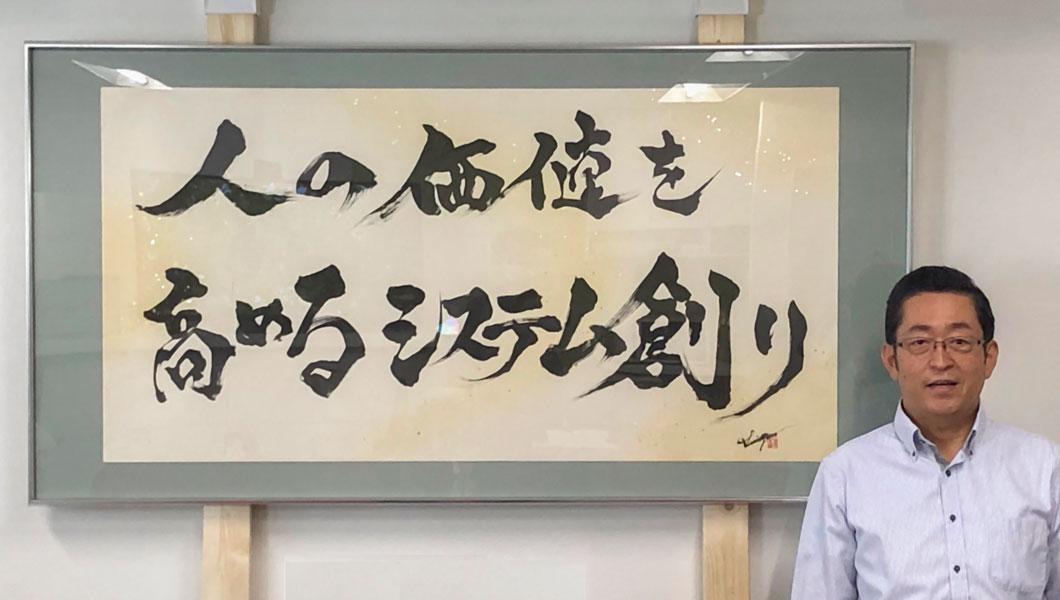 人の価値を
高めるシステム創り